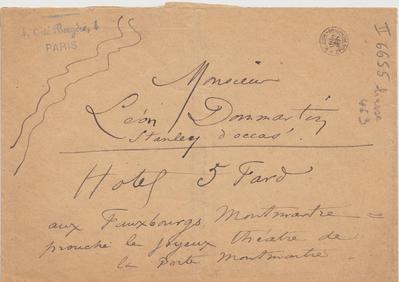 4, Cité Bergère, 4
PARIS
II 6655
463
Monsieur
Léon Dommartin
Stanley d'occas!
Hotel 5 Fard
aux Fauxbourgs Montmartre =
prouche le joyeux théâtre de
la Porte Montmartre.